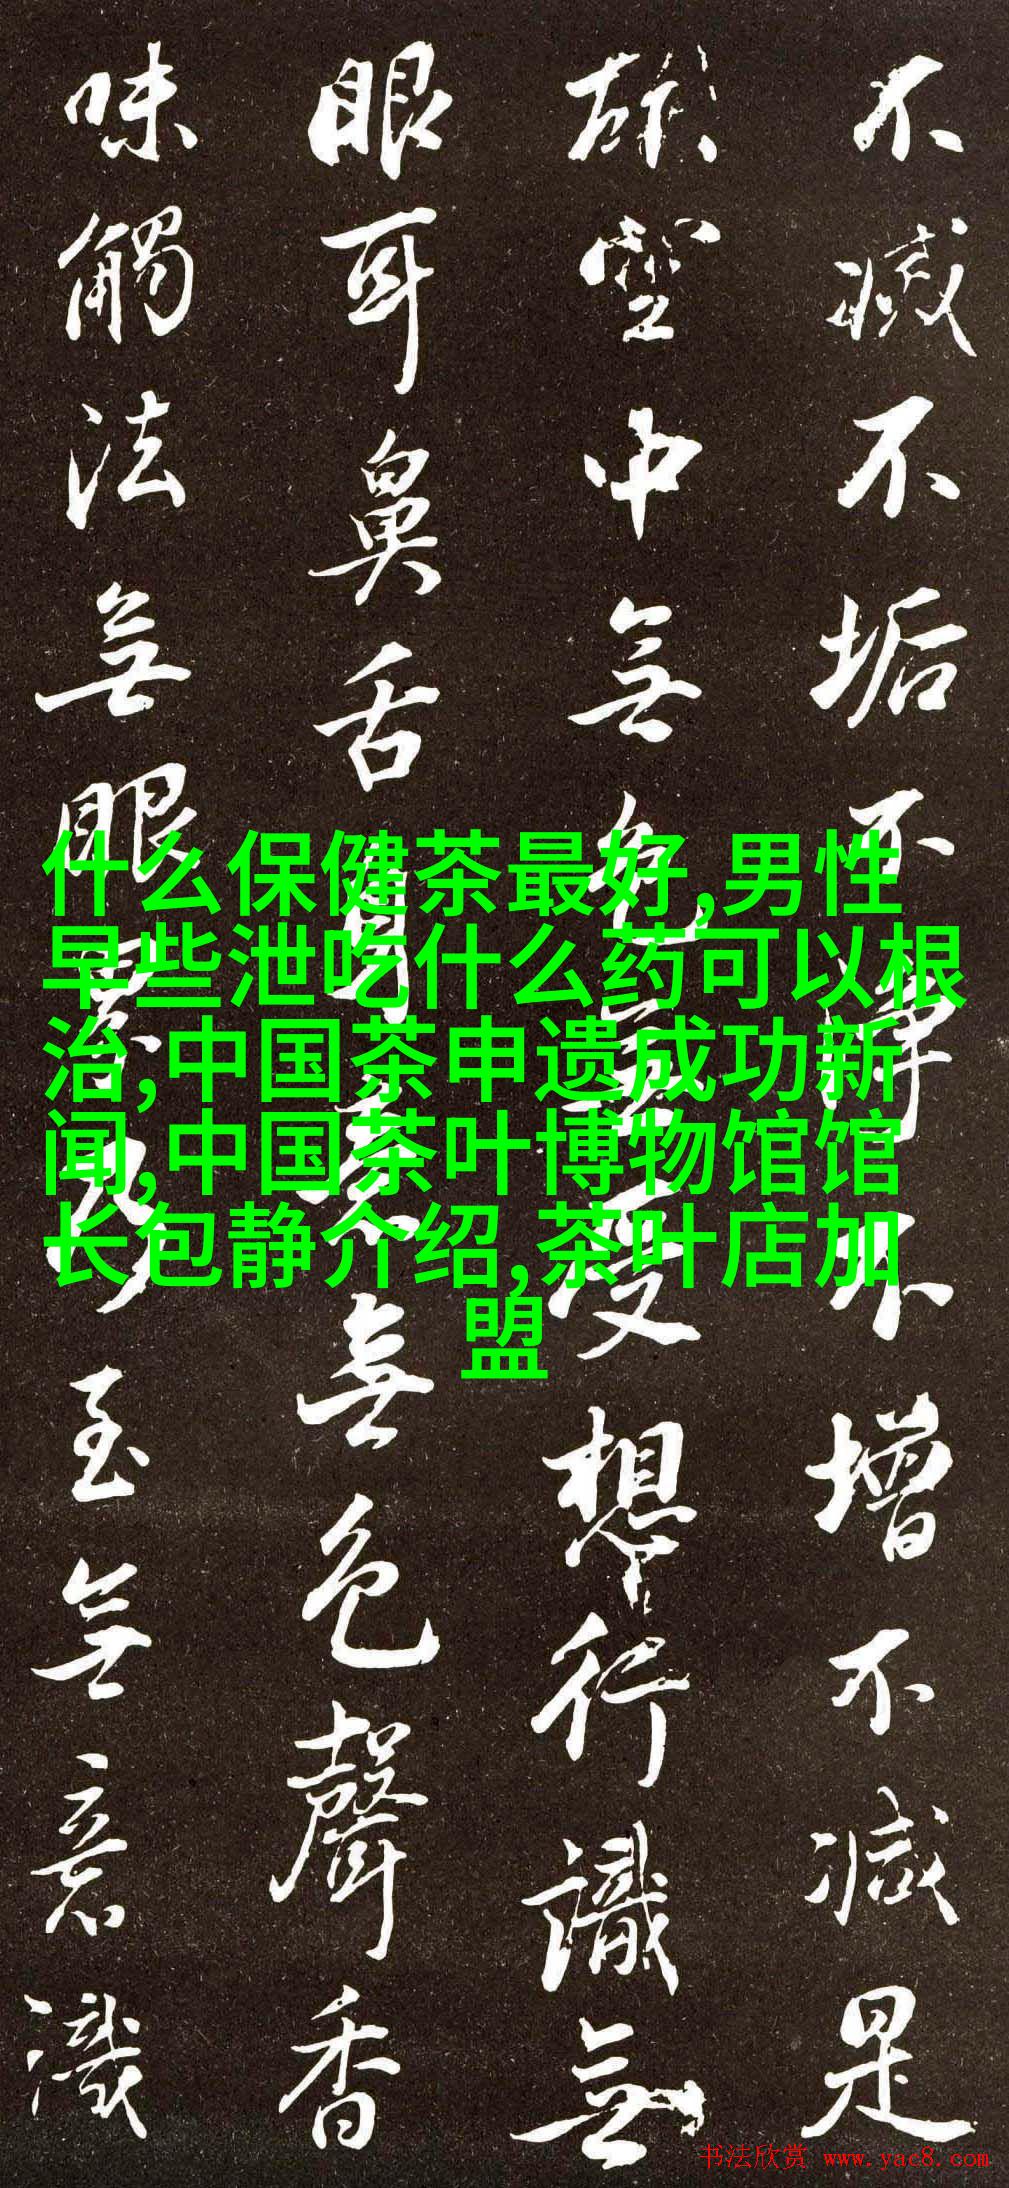 不滅不垢不淨不增不減是
故空中無色無受想行識無
眼耳鼻舌身意無色聲香
味觸法無眼界乃至無意識
什么保健茶最好,男性
早些泄吃什么药可以根
治,中国茶申遗成功新
闻,中国茶叶博物馆馆
长包静介绍,茶叶店加
盟
书法欣赏 www.yac8.com